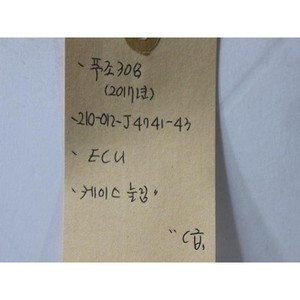 - 푸조308
(2017년)
-210-012-J4741-43
- ECU
- 케이스 눌림
"C급"